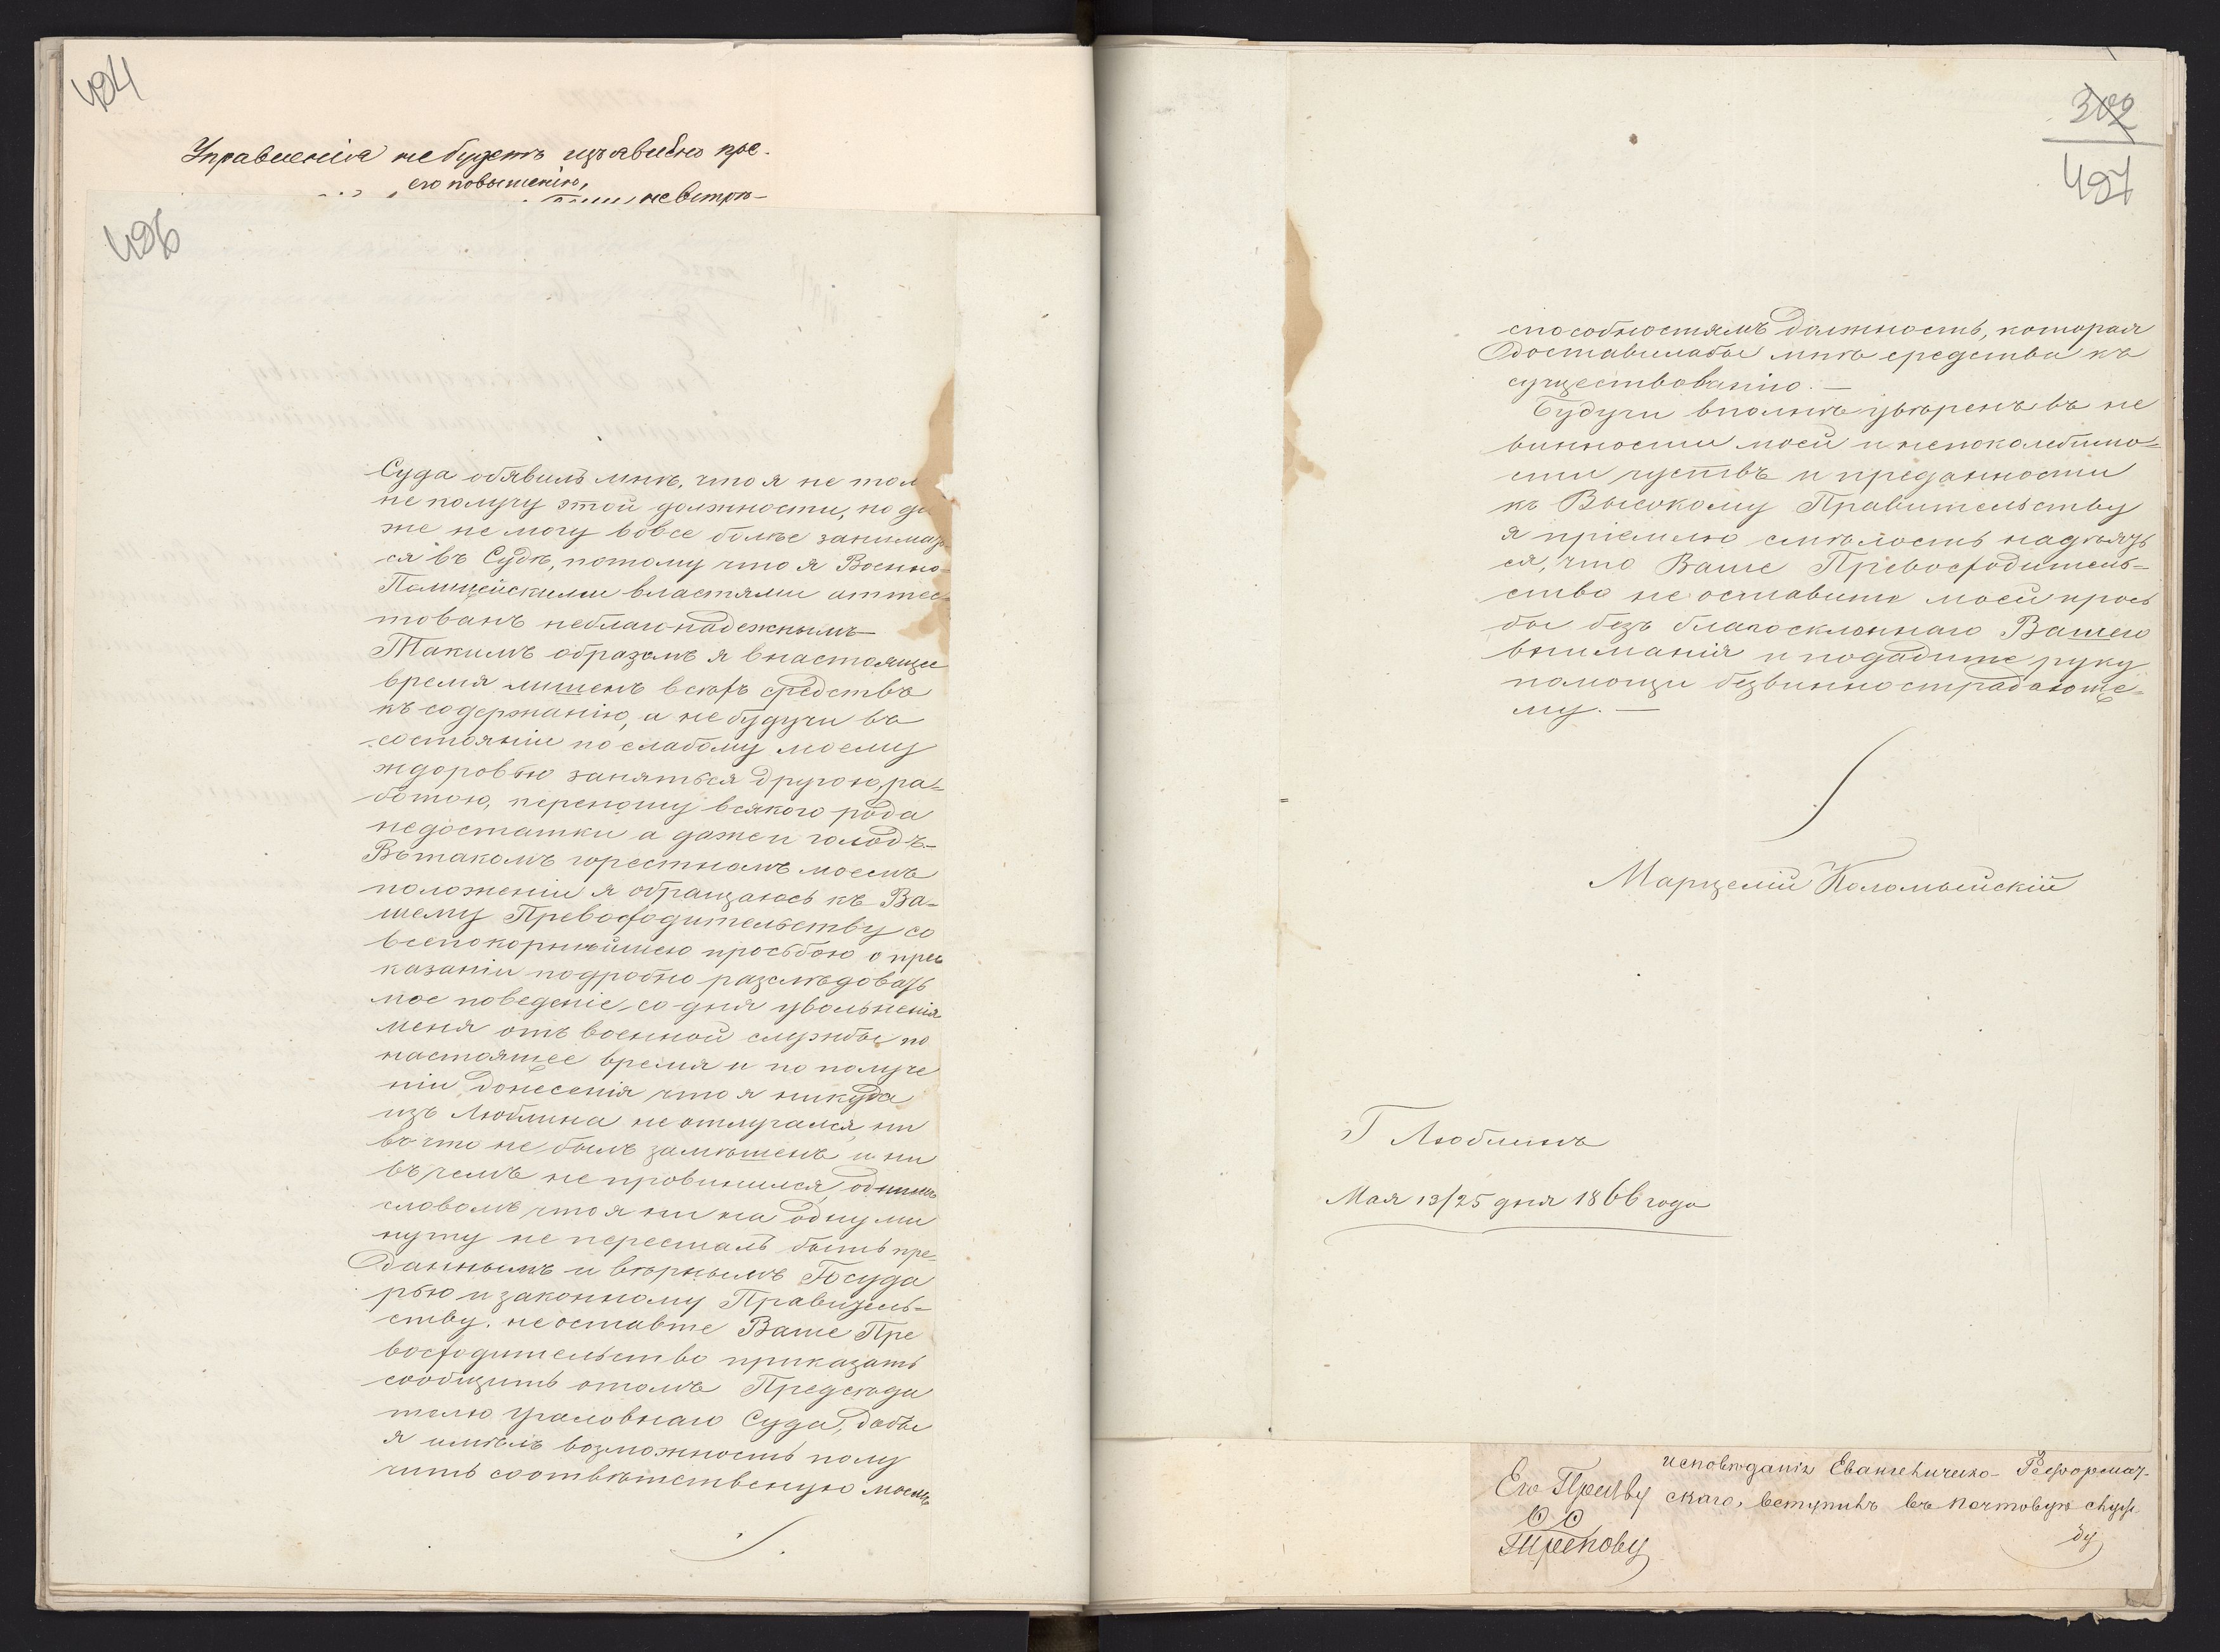 494
Управленія не будетъ изъявлено пре-
его повышенію,
не встрѣ-
496
Суда обявилъ мнѣ, что я не тол
не получу этой должности, но да
же не могу вовсе болѣе занимать
ся въ Судѣ, потому что я Военно-
Полицейскими властями аттес-
тованъ неблагонадежнымъ
Такимъ образомъ я внастоящее
время лишенъ всѣхъ средствъ
къ содержанію, а небудучи въ
состояніи по слабому моему
здоровью заняться другою ра-
ботою, переношу всякого рода
недостатки а даже и голодъ-
Вътакомъ горестномъ моемъ
положеніи я обращаюсь къ Ва-
шему Превосходительству со
всепокорнѣйшею просьбою о при
казаніи подробно разслѣдовать
мое поведеніе, со дня увольненія
меня отъ военной службы по
настоящее время и по получе
ніи донесенія что я никуда
изъ Люблина не отлучался, ни
вочто не былъ замѣшенъ и ни
въчемъ не провинился, однимъ
словомъ что я ни на одну ми
нуту не пересталъ быть пре-
даннымъ и вѣрнымъ Госуда
рью и законному Правитель-
ству. не оставте Ваше Пре
восходительство приказать
сообщить отомъ Предсѣда
телю Уголовнаго Суда, дабы
я имѣлъ возможность полу
чить соотвѣтственую моимъ
302
497
способностямъ должность, которая
доставилабы мнѣ средства къ
существованію. —
Будучи вполнѣ увѣренъ въ не
винности моей и непоколебимо-
сти чуствъ и преданности
къ Высокому Правительству
я пріемлю смѣлость надѣять
ся, что Ваше Превосходитель-
ство не оставите моей прось
бы безъ благосклоннаго Вашего
вниманія и подадите руку
помощи безвинно страдающе-
му. —
Марцелій Коломыйскій
Г Люблинъ
Мая 13/25 дня 1866 года
исповѣданія Евангелическо- Реформат-
Его Пр-ству скаго, вступилъ въ почтовую служ.
бу
Ѳ Ѳ
Трепову